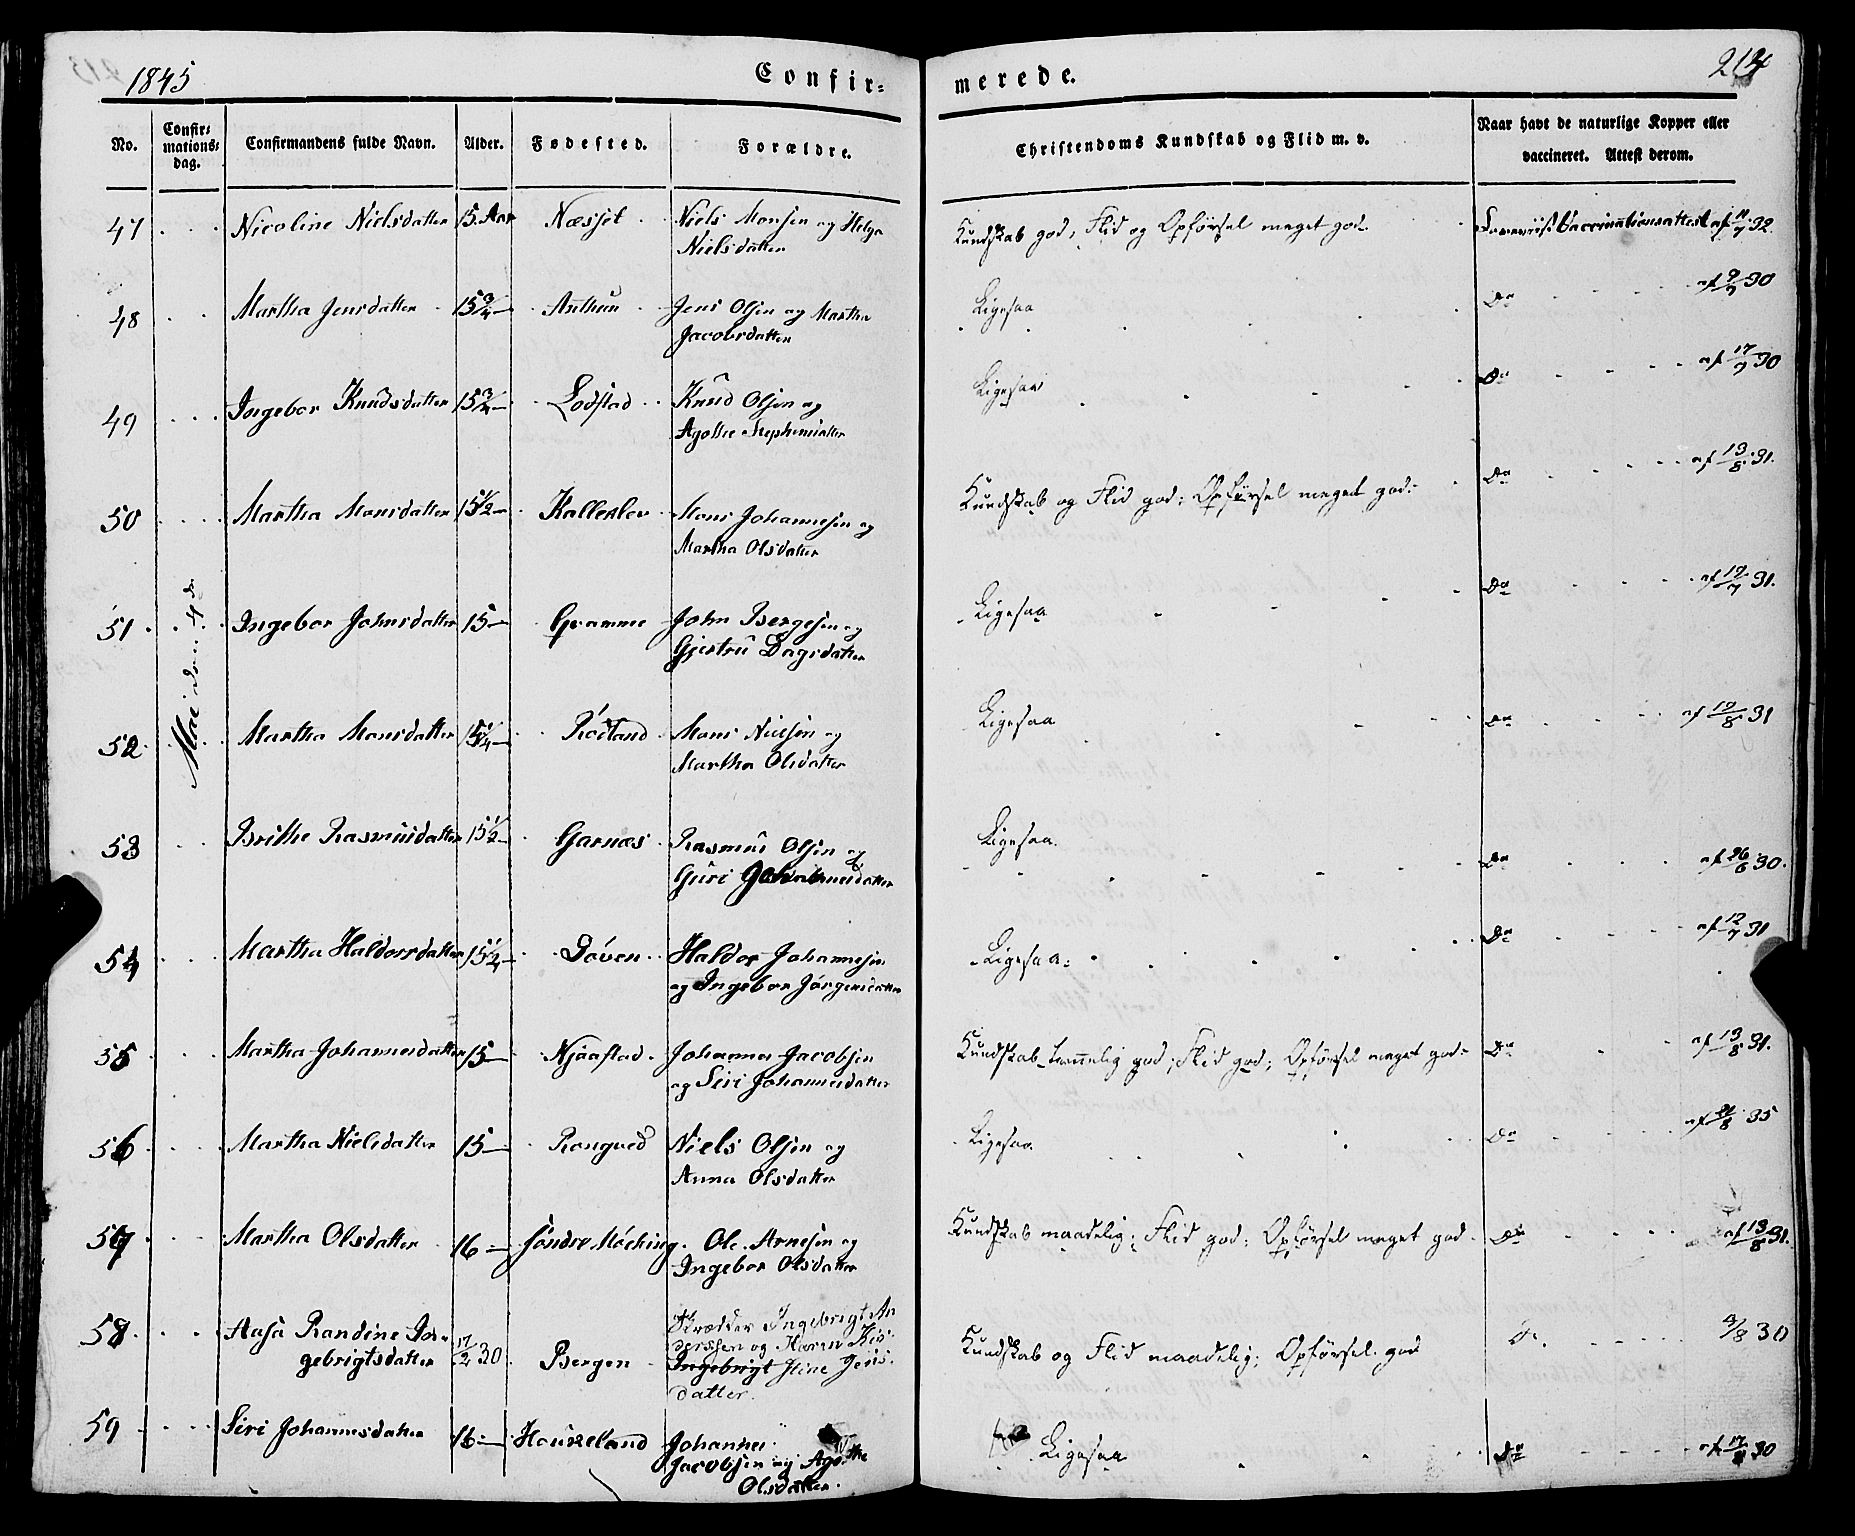 1845
Confir-
merede.
214
No.
Confir-
mations-
dag.
Confirmandens fulde Navn.
Alder.
Fødested.
Forældre.
Christendoms Kundskab og Flid m. v.
Naar havt de naturlige Kopper eller
vaccineret. Attest derom.
Mai den 4de
47 Nicoline Nielsdatter 15 Aar Næsset Niels Monsen og Helga
Nielsdatter
Kundskab god, Flid og Opførsel meget god. Vaccinationsattest af 11/7 32
48 Martha Jensdatter 15 3/4 Anthun Jens Olsen og Martha
Jacobsdatter
Ligesaa Do af 9/7 30
49 Ingebor Knudsdatter 15 3/4 Lodstad Knud Olsen og
Agothe Stephensdatter
Ligesaa Do af 17/7 30
50 Martha Monsdatter 15 1/2 Kalleklev Mons Johannesen og
Martha Olsdatter
Kundskab og Flid god; Opførsel meget god. Do af 13/8 31.
51 Ingebor Johnsdatter 15 Gramme John Bergesen og
Gjertru Dagsdatter
Ligesaa Do af 12/7 31.
52 Martha Monsdatter 15 1/4 Røstand Mons Nielsen og
Martha Olsdatter
Ligesaa Do af 12/8 31
53 Brithe Rasmusdatter 15 1/2 Garnæs Rasmus Olsen og
Guri Johannesdatter
Ligesaa. Do af 26/6 30.
54 Martha Haldorsdatter 15 1/2 Døven Haldor Johannesen
og Ingebor Jørgensdatter
Ligesaa. Do af 12/7 31
55 Martha Johannesdatter 15 Njaastad Johannes Jacobsen
og Siri Johannesdatter
Kundskab temmelig god; Flid god; Opførsel meget god. Do af 13/8 31.
56 Martha Nielsdatter 15 Rongved Niels Olsen og
Anna Olsdatter
Ligesaa. Do af 35
57 Martha Olsdatter 16 Søndre Møcking Ole Arnesen og
Ingebor Olsdatter
Kundskab maadelig; Flid god; Opførsel meget god. Do af 13/8 31.
58 Aasa Randine In-
gebrigtsdatter 17/2 30 Bergen Skrædder Ingebrigt An
derssen og Karen Kir-
Ingebrigt stine Jens-
datter.
Kundskab og Flid maadelig; Opførsel god Do 4/8 30
59 Siri Johannesdatter 16 Houkeland Johannes
Jacobsen og Agothe
Olsdatter.
Ligesaa Do af 30